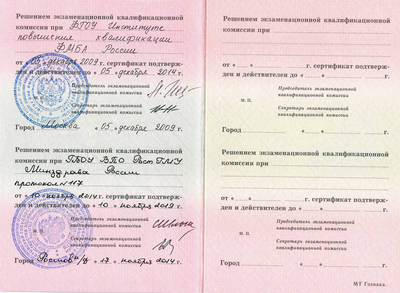 Решением экзаменационной квалификационной
комиссии при ФГОУ Институте
повышения квалификации
ФМБА России
от «05» декабря 2009 г. сертификат подтверж-
ден и действителен до «05» декабря 2014 г.
Председатель экзаменационной
квалификационной комиссии
Секретарь экзаменационной
квалификационной комиссии
Город Москва «05» декабря 2009 г.
Решением экзаменационной квалификационной
комиссии при ГБОУ ВПО РостГМУ
Минздрава России
протокол №117
от «10» ноября 2014 г. сертификат подтверж-
ден и действителен до «10» ноября 2019 г.
Председатель экзаменационной
квалификационной комиссии
Секретарь экзаменационной
квалификационной комиссии
Город Ростов н/Д «17» ноября 2014 г.
Решением экзаменационной квалификационной
комиссии при
от « » г. сертификат подтверж-
ден и действителен до « » г.
Председатель экзаменационной
квалификационной комиссии
М. П.
Секретарь экзаменационной
квалификационной комиссии
Город « » г.
Решением экзаменационной квалификационной
комиссии при
от « » г. сертификат подтверж-
ден и действителен до « » г.
Председатель экзаменационной
квалификационной комиссии
М. П.
Секретарь экзаменационной
квалификационной комиссии
Город « » г.
МТ Гознака.